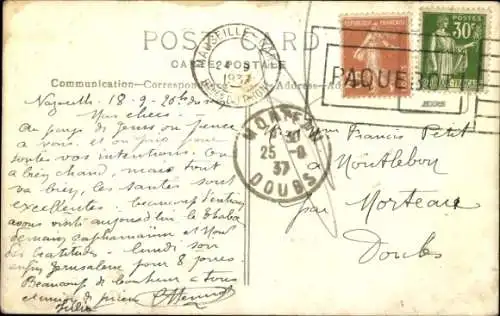 POST CARD
CARTE POSTALE
Communication—Correspondence
Address—Adresse
MARSEILLE-GARE
24 9
1937
RÉPUBLIQUE FRANÇAISE
POSTES
30c
PAQUEBOT
MORTEAU
25 -9
37
DOUBS
Nazareth 18-9
Mes chers
au pays de Jésus on pense
à vous. et on prie pour
toutes vos intentions. On
a bien chaud, mais tout
va bien, les santés sont
excellentes. beaucoup d'entrain
avons visité aujourd'hui le Thabor
demain Capharnaüm et Mont
des béatitudes – lundi soir
enfin Jérusalem pour 8 jours.
Beaucoup de bonheur à tous
et union de prières
Julia
Francis Petit
à Montlebon
par Morteau
Doubs